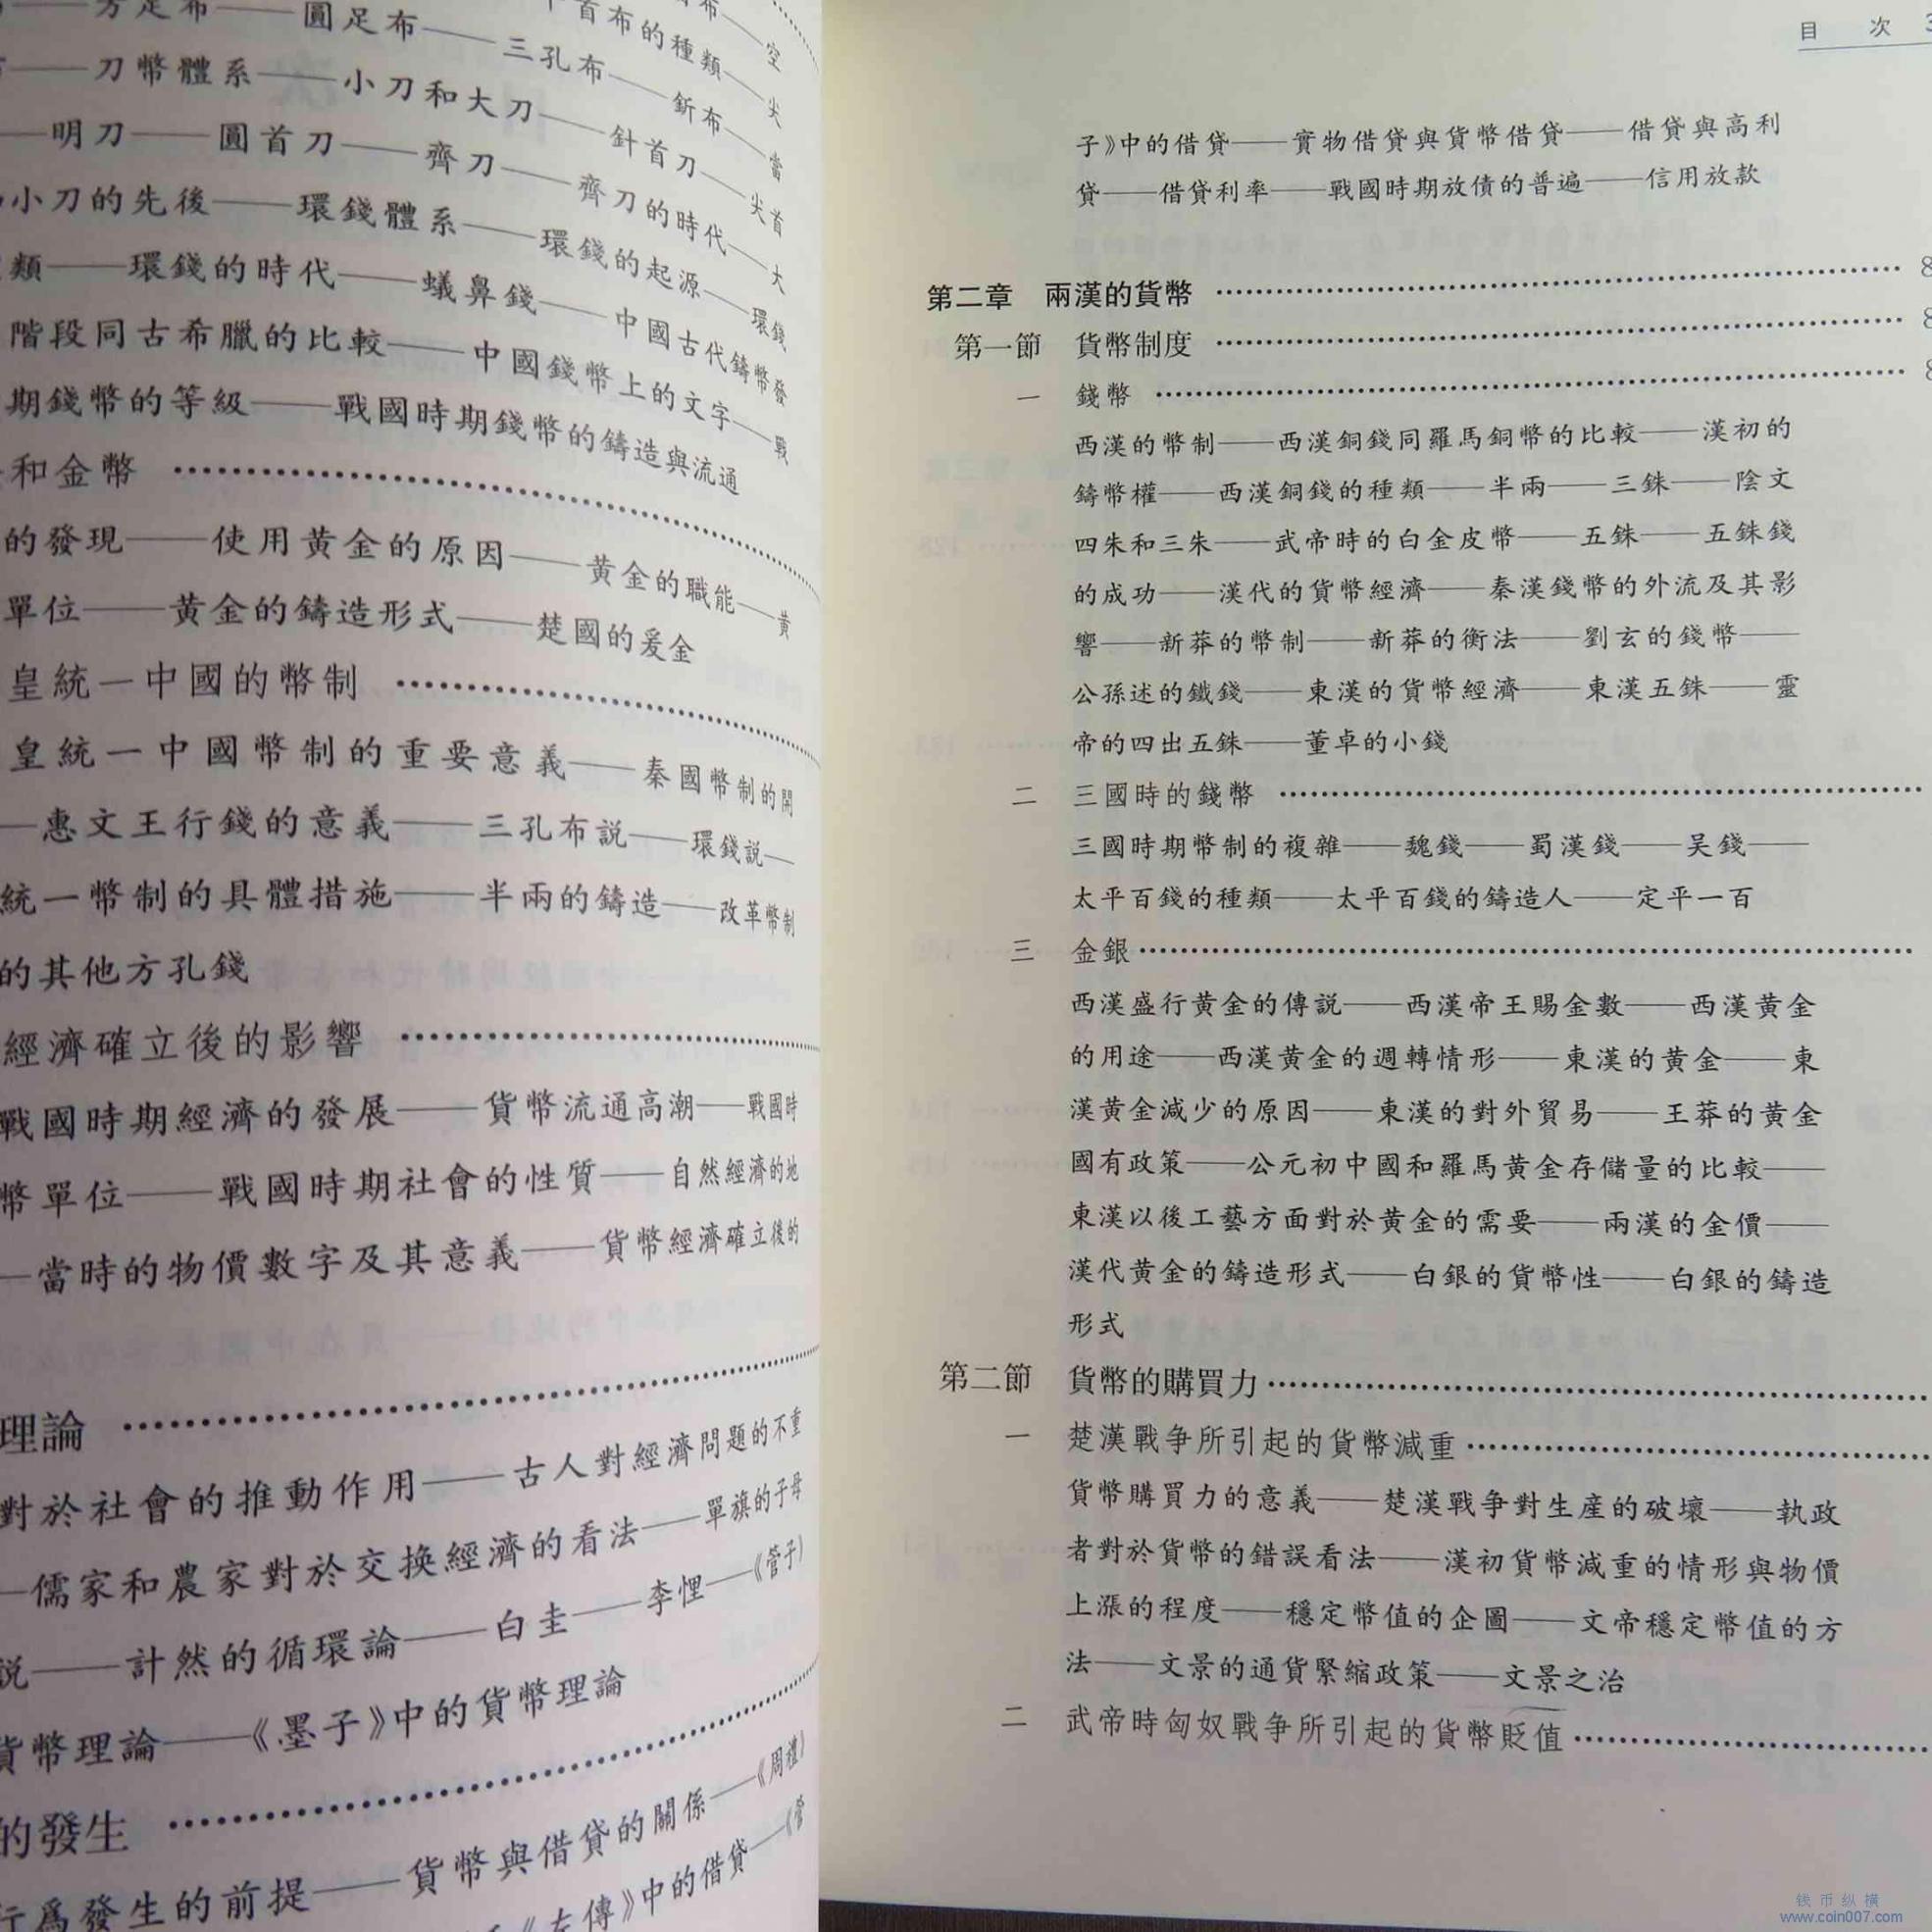 布——空
首布的種類——尖
方足布——圓足布——三孔布——釿布——當
——刀幣體系——小刀和大刀——針首刀——尖首
——明刀——圓首刀——齊刀——齊刀的時代——大
小刀的先後——環錢體系——環錢的起源——環錢
類——環錢的時代——蟻鼻錢——中國古代鑄幣發
階段同古希臘的比較——中國錢幣上的文字——戰
期錢幣的等級——戰國時期錢幣的鑄造與流通
和金幣
的發現——使用黃金的原因——黃金的職能——黃
單位——黃金的鑄造形式——楚國的爰金
皇統一中國的幣制
皇統一中國幣制的重要意義——秦國幣制的開
—惠文王行錢的意義——三孔布説——環錢説—
統一幣制的具體措施——半兩的鑄造——改革幣制
的其他方孔錢
經濟確立後的影響
戰國時期經濟的發展——貨幣流通高潮——戰國時
幣單位——戰國時期社會的性質——自然經濟的地
—當時的物價數字及其意義——貨幣經濟確立後的
理論
對於社會的推動作用——古人對經濟問題的不重
—儒家和農家對於交换經濟的看法——單旗的子母
説——計然的循環論——白圭——李悝——《管子》
貨幣理論——《墨子》中的貨幣理論
的發生
行爲發生的前提——貨幣與借貸的關係——《周禮》
《左傳》中的借貸——《管
目 次 3
子》中的借貸——實物借貸與貨幣借貸——借貸與高利
貸——借貸利率——戰國時期放債的普遍——信用放款
第二章 兩漢的貨幣 8
第一節 貨幣制度 8
一 錢幣 8
西漢的幣制——西漢銅錢同羅馬銅幣的比較——漢初的
鑄幣權——西漢銅錢的種類——半兩——三銖——陰文
四朱和三朱——武帝時的白金皮幣——五銖——五銖錢
的成功——漢代的貨幣經濟——秦漢錢幣的外流及其影
響——新莽的幣制——新莽的衡法——劉玄的錢幣——
公孫述的鐵錢——東漢的貨幣經濟——東漢五銖——靈
帝的四出五銖——董卓的小錢
二 三國時的錢幣
三國時期幣制的複雜——魏錢——蜀漢錢——吴錢——
太平百錢的種類——太平百錢的鑄造人——定平一百
三 金銀
西漢盛行黄金的傳説——西漢帝王賜金數——西漢黄金
的用途——西漢黄金的週轉情形——東漢的黄金——東
漢黄金減少的原因——東漢的對外貿易——王莽的黄金
國有政策——公元初中國和羅馬黄金存儲量的比較——
東漢以後工藝方面對於黄金的需要——兩漢的金價——
漢代黄金的鑄造形式——白銀的貨幣性——白銀的鑄造
形式
第二節 貨幣的購買力
一 楚漢戰争所引起的貨幣減重
貨幣購買力的意義——楚漢戰争對生産的破壞——執政
者對於貨幣的錯誤看法——漢初貨幣減重的情形與物價
上漲的程度——穩定幣值的企圖——文帝穩定幣值的方
法——文景的通貨緊縮政策——文景之治
二 武帝時匈奴戰争所引起的貨幣貶值
钱币纵横
www.coin007.com